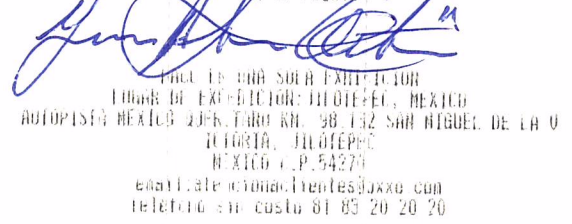 PAGO EN UNA SOLA EXHIBICION
LUGAR DE EXPEDICION: JILOTEPEC, MEXICO
AUTOPISTA MEXICO QUERETARO KM. 98.132 SAN MIGUEL DE LA V
ICTORIA, JILOTEPEC
MEXICO C.P.54270
email:atencionaclientes@oxxo.com
telefono sin costo 81 83 20 20 20